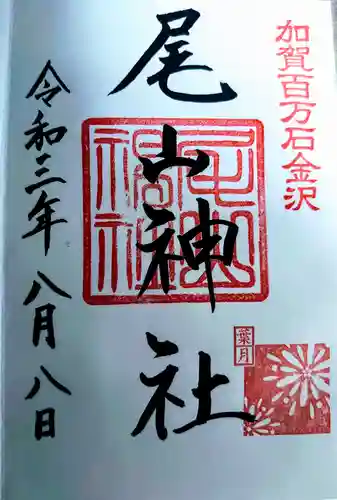 加賀百万石金沢
尾山神社
令和三年八月八日
尾山神社
葉月